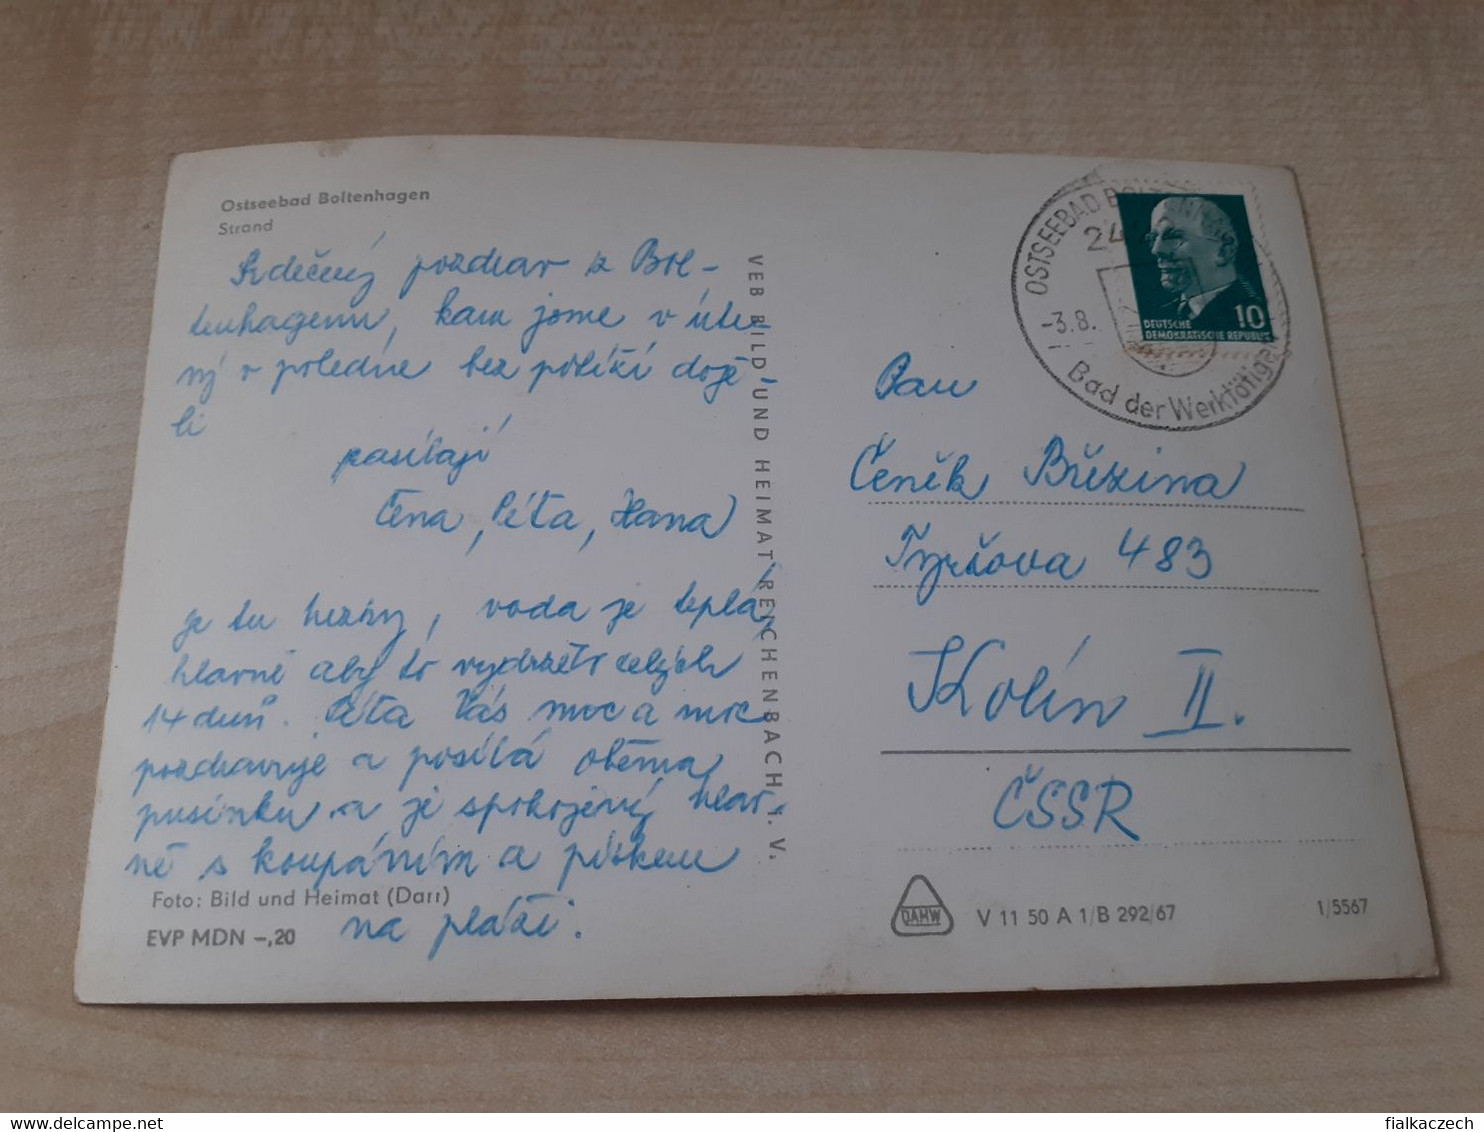 Ostseebad Boltenhagen
Strand
Srdečný pozdrav z Bol-
tenhagenu, kam jsme v úter-
ný v poledne bez potíží doje-
li
posílají
Péťa, Hana
Je tu hezky, voda je teplá,
hlavně aby to vydrželo celých
14 dnů. Péťa Vás moc a moc
pozdravuje a posílá oběma
pusinku a je spokojený hlav-
ně s koupáním a pískem
na pláži.
Foto: Bild und Heimat (Darr)
EVP MDN -,20
VEB BILD UND HEIMAT REICHENBACH i. V.
OSTSEEBAD
24
-3.8.
Bad der Werktätigen
10
DEUTSCHE
DEMOKRATISCHE REPUBLIK
Pan
Čeněk Březina
Tyršova 483
Kolín II.
ČSSR
DAMW
V 11 50 A 1/B 292/67
1/5567
fialkaczech